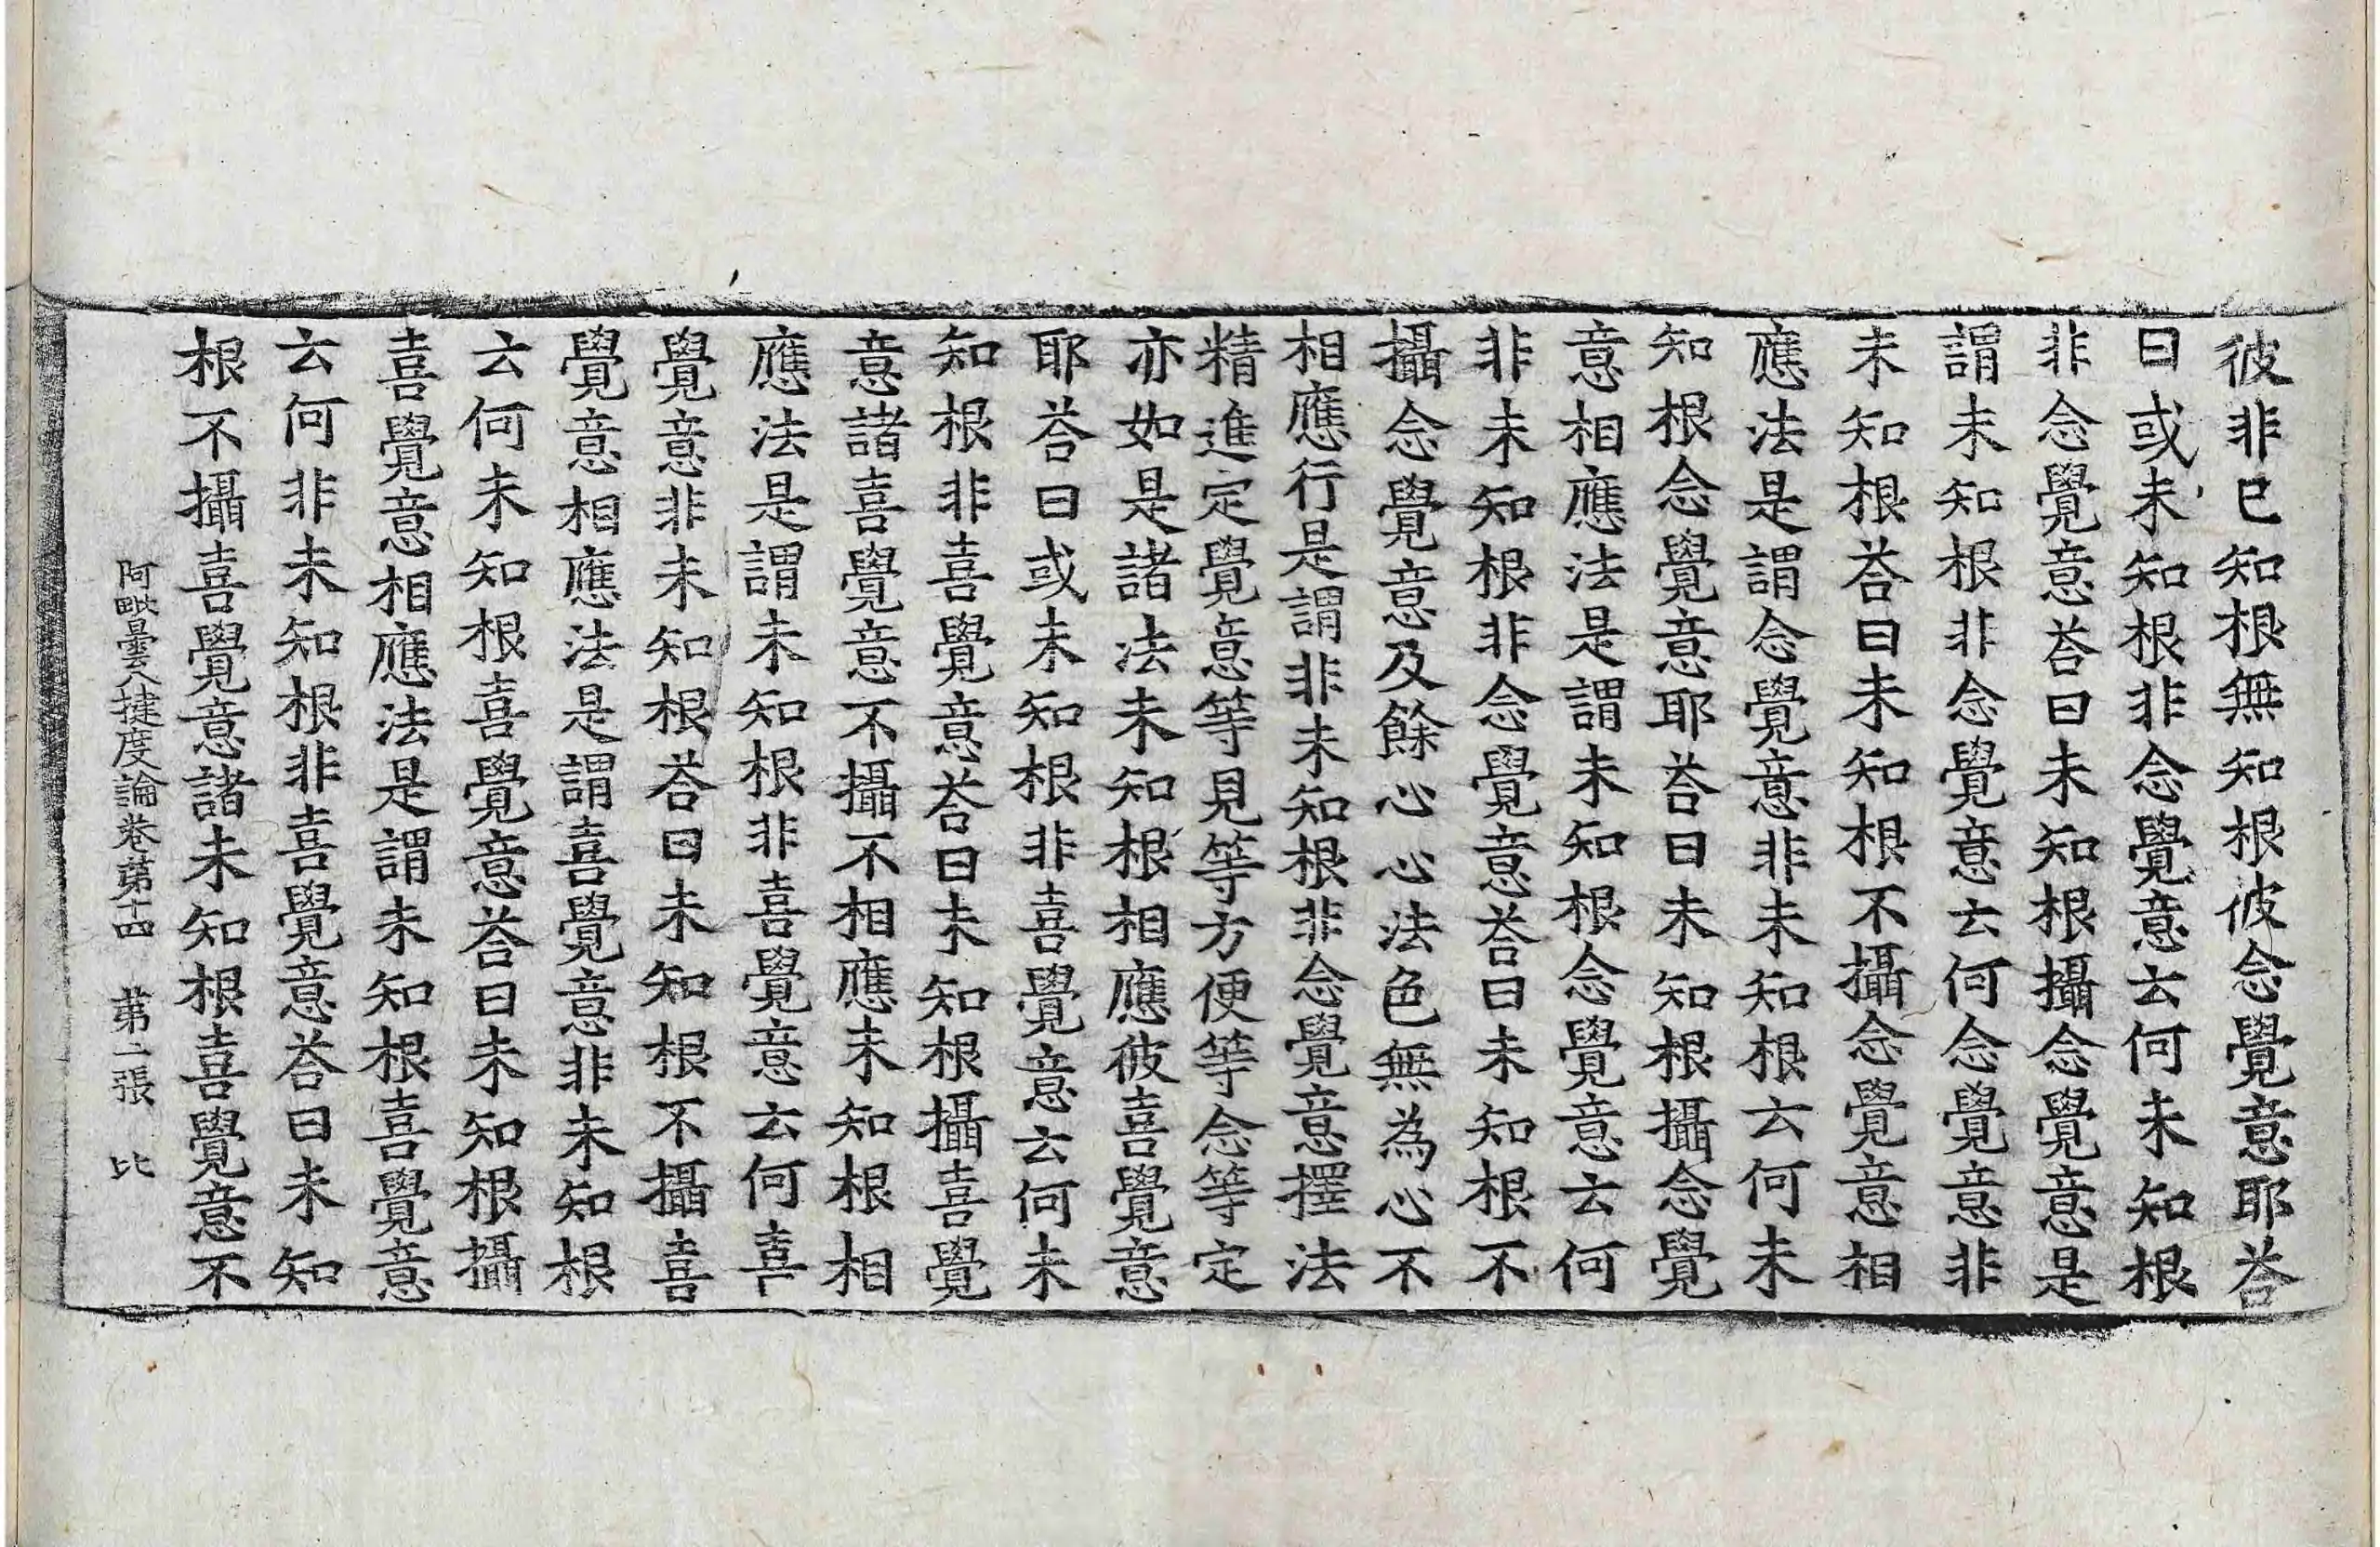 彼非已知根無知根彼念覺意耶荅
曰或未知根非念覺意云何未知根
非念覺意荅曰未知根攝念覺意是
謂未知根非念覺意云何念覺意非
未知根荅曰未知根不攝念覺意相
應法是謂念覺意非未知根云何未
知根念覺意耶荅曰未知根攝念覺
意相應法是謂未知根念覺意云何
非未知根非念覺意荅曰未知根不
攝念覺意及餘心心法色無為心不
相應行是謂非未知根非念覺意擇法
精進定覺意等見等方便等念等定
亦如是諸法未知根相應彼喜覺意
耶荅曰或未知根非喜覺意云何未
知根非喜覺意荅曰未知根攝喜覺
意諸喜覺意不攝不相應未知根相
應法是謂未知根非喜覺意云何喜
覺意非未知根荅曰未知根不攝喜
覺意相應法是謂喜覺意非未知根
云何未知根喜覺意荅曰未知根攝
喜覺意相應法是謂未知根喜覺意
云何非未知根非喜覺意荅曰未知
根不攝喜覺意諸未知根喜覺意不
阿毗曇八揵度論卷第十四 第二張 比